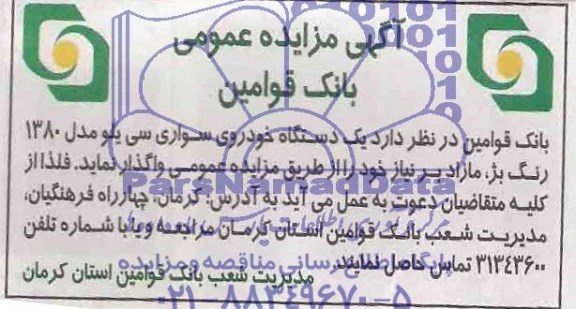 آگهی مزایده عمومی
بانک قوامین
بانک قوامین در نظر دارد یک دستگاه خودروی سواری سی یلو مدل ۱۳۸۰
رنگ بژ، مازاد بر نیاز خود را از طریق مزایده عمومی واگذار نماید. فلذا از
کلیه متقاضیان دعوت به عمل می آید به آدرس: کرمان، چهارراه فرهنگیان،
مدیریت شعب بانک قوامین استان کرمان مراجعه و یا با شماره تلفن
۳۱۳٤۳۶۰۰ تماس حاصل نمایند.
مدیریت شعب بانک قوامین استان کرمان
ParsNamadData
۰۲۱-۸۸۳۴۹۶۷۰-۵